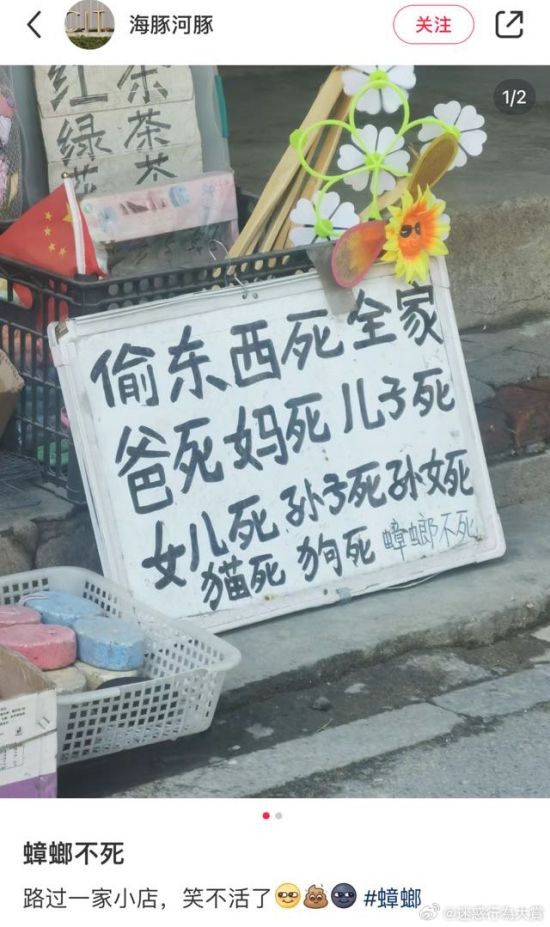 海豚河豚
关注
1/2
红 茶
绿 茶
茶
偷东西死全家
爸死妈死儿子死
女儿死孙子死孙女死
猫死 狗死 蟑螂不死
蟑螂不死
路过一家小店，笑不活了😑💩🌚 #蟑螂
@迷惑行為大賞